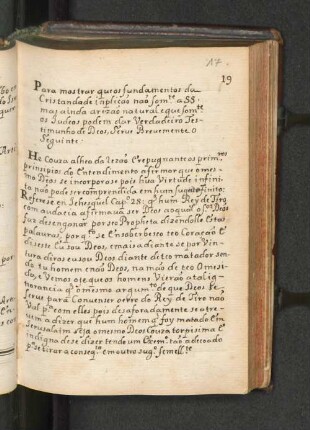 17.
19
Para mostrar q̃ os fundamentos da
Cristandade implicaõ naõ som.te a SS.
mas ainda a rezaõ natural e que som.te
os Judeos podem dar Verdadeiro Tes-
timunho de Deos, Serve Brevemente o
Seguinte
He Couza alhea da rezaõ e repugnante aos prim.ros
prinsipios do Entendimento afirmar que o mes-
mo Deos se incorporase pois hũa Virtude infini-
ta naõ pode ser comprendida em hum sugeito finito;
Referese en Jehesquel Cap.º 28: q̃ hum Rey de Tiro
com audacia afirmava ser Deos ao qual o S.r Deos
fas desenganar por se Propheta dizendolle Estas
palauras, por q.to se Ensoberbesso teu Coração E
diseste Eu sou Deos, e mais adiante se por Vin-
tura diras eu sou Deos diante de teo matador sen-
do tu homem e naõ Deos, na maõ de teo Omesi-
da, e Vemos oje que os homens Vieraõ a tal ig-
norancia q̃ o mesmo argum.to de que Deos se
serve para Convenser o erro do Rey de Tiro naõ
Val p.a com elles pois desaforadamente se atre-
vem a dizer que hum homem q̃ foy matado em
Jerusalaim seja o mesmo Deos Couza torpissima E
indigna de se dizer tendo um Exem.lo taõ adecoado
p.a se tirar a conseq.a em outro sug.to semell.te